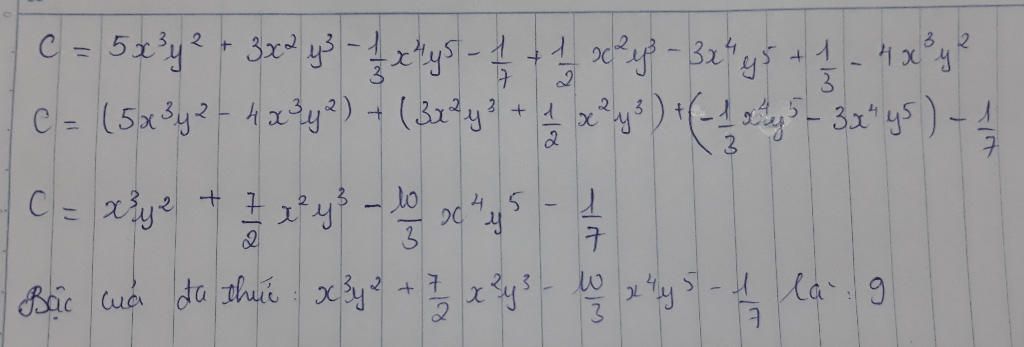 C = 5x³y² + 3x²y³ - 1/3 x⁴y⁵ - 1/7 + 1/2 x²y³ - 3x⁴y⁵ + 1/3 - 4x³y²
C = (5x³y² - 4x³y²) + (3x²y³ + 1/2 x²y³) + (-1/3 x⁴y⁵ - 3x⁴y⁵) - 1/7
C = x³y² + 7/2 x²y³ - 10/3 x⁴y⁵ - 1/7
Bậc của đa thức: x³y² + 7/2 x²y³ - 10/3 x⁴y⁵ - 1/7 là: 9